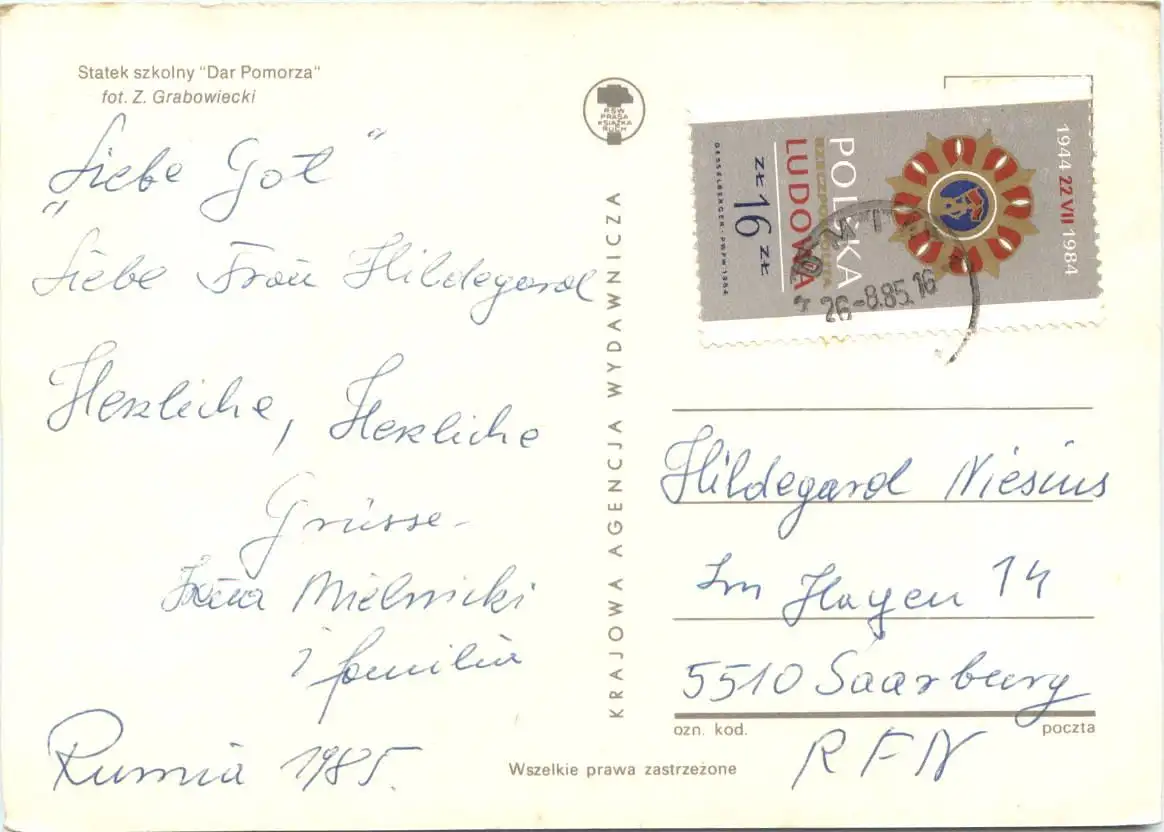 Statek szkolny "Dar Pomorza"
fot. Z. Grabowiecki
"Liebe Got"
Liebe Frau Hildegard
Herzliche, Herzliche
Grüsse
Mielnicki
i familia
Rumia 1985.
RSW
PRASA
KSIĄŻKA
RUCH
KRAJOWA AGENCJA WYDAWNICZA
Wszelkie prawa zastrzeżone
1944 22 VII 1984
POLSKA
RZECZPOSPOLITA
LUDOWA
ZŁ 16 ZŁ
HESSELBERGER · PWPW 1984
26-8.85.16
Hildegard Niesius
Im Hagen 14
5510 Saarburg
ozn. kod.
poczta
RFN